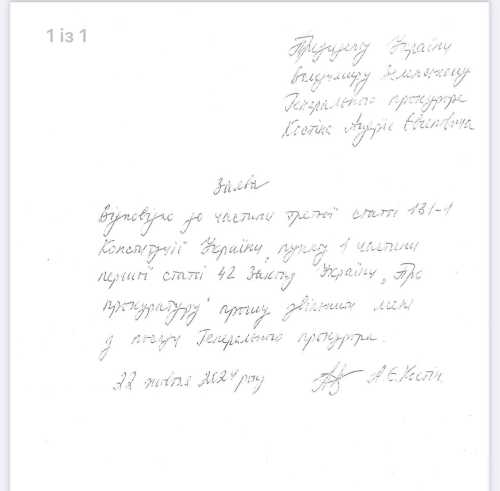 1 із 1
Президенту України
Володимиру Зеленському
Генерального прокурора
Костіна Андрія Євгеновича
Заява
Відповідно до частини третьої статті 131-1
Конституції України, пункту 1 частини
першої статті 42 Закону України „Про
прокуратуру" прошу звільнити мене
з посади Генерального прокурора.
22 жовтня 2024 року А.Є. Костін